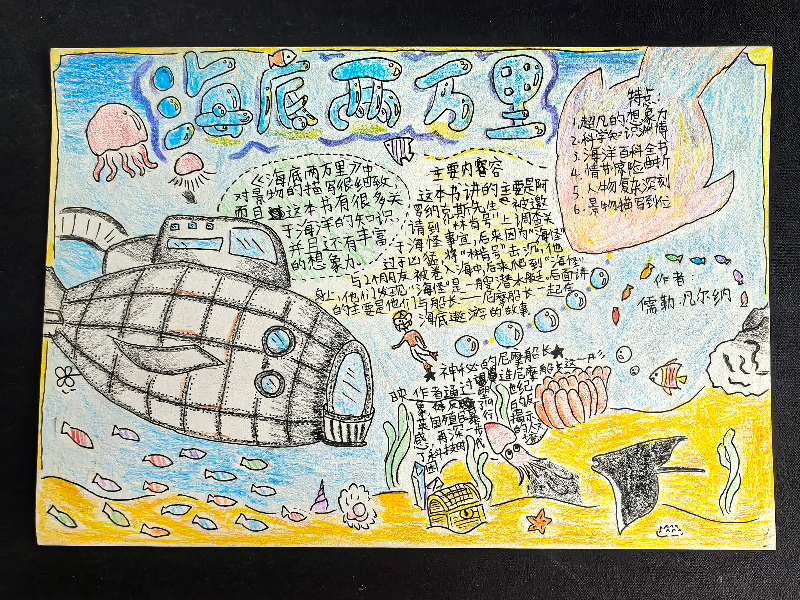 海底两万里
《海底两万里》中
对景物的描写很细致,
而且这本书有很多关
于海洋的知识,
并且还有丰富
的想象力.
主要内容容
这本书讲的主要是阿
罗纳克斯先生被邀
请到“林肯号”上调查关
于海怪事宜,后来因为“海怪”
过于凶猛,将“林肯号”击沉,他
与2个朋友被卷入海中,后来爬到“海怪”
身上,他们发现“海怪”是一艘潜水艇,后面讲
的主要是他们与船长——尼摩船长一起在
海底遨游的故事
特点:
1.超凡的想象力
2.科学知识渊博
3.海洋百科全书
4.情节惊险曲折
5.人物复杂深刻
6.景物描写到位
作者:
儒勒·凡尔纳
★神秘的尼摩船长★
作者通过
尼摩船长这一